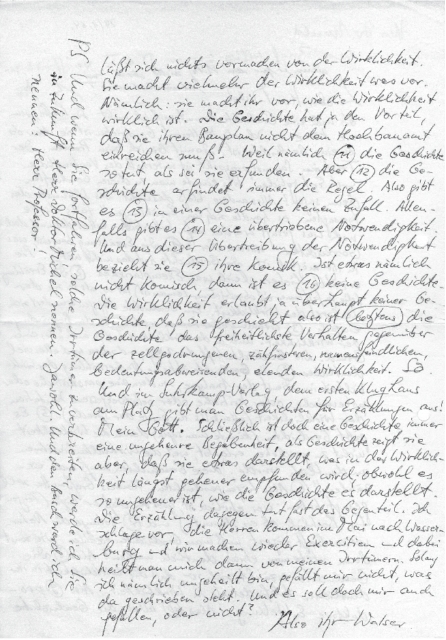 läßt sich nichts vormachen von der Wirklichkeit.
Sie macht vielmehr der Wirklichkeit was vor.
Nämlich: sie macht ihr vor, wie die Wirklichkeit
wirklich ist. Die Geschichte hat ja den Vorteil,
daß sie ihren Bauplan nicht dem Hochbauamt
einreichen muß. Weil nämlich (11) die Geschichte
so tut, als sei sie erfunden. Aber (12) die Ge-
schichte erfindet immer die Regel. Also gibt
es (13) in einer Geschichte keinen Zufall. Allen-
falls gibt es (14) eine übertriebene Notwendigkeit.
Und aus dieser Übertreibung der Notwendigkeit
bezieht sie (15) ihre Komik. Ist etwas nämlich
nicht komisch, dann ist es (16) keine Geschichte.
Die Wirklichkeit erlaubt ja überhaupt keiner Ge-
schichte, daß sie geschieht also ist (letztens) die
Geschichte das freiheitlichste Verhalten gegenüber
der zellgedrungenen, zähfinsteren,
bedeutungsabweisenden elenden Wirklichkeit. So.
Und im Suhrkamp-Verlag, dem ersten Klughaus
am Platz, gibt man Geschichten für Erzählungen aus!
Mein Gott. Schließlich ist doch eine Geschichte immer
eine ungeheure Begebenheit, als Geschichte zeigt sie
aber, daß sie etwas darstellt, was in der Wirklich-
keit längst geheuer empfunden wird, obwohl es
so ungeheuer ist, wie die Geschichte es darstellt.
Die Erzählung dagegen tut fast das Gegenteil. Ich
schlage vor die Herren kommen im Mai nach Wasser-
burg und wir machen wieder Exerzitien und dabei
heilt man mich dann von meinen Irrtümern. Solang
ich nämlich ungeheilt bin, gefällt mir nicht, was
da geschrieben steht. Und es soll doch mir auch
gefallen, oder nicht?
Also ihr Walser
PS: Und wenn Sie fortfahren solche Irrtümer zu verbreiten, werde ich Sie
in Zukunft Herr Doktor Michel nennen. Jawohl! Und den Bond werd ich
nennen: Herr Professor!